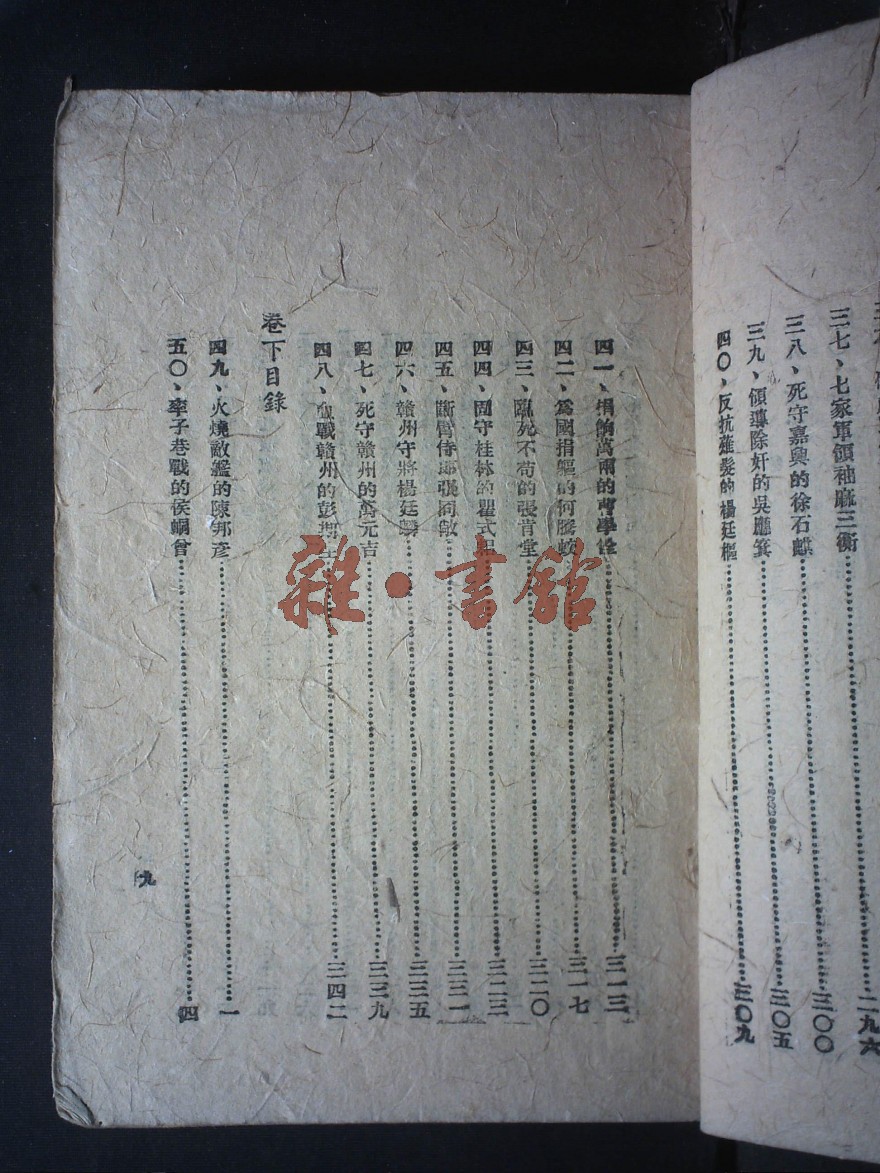 三七、七家軍領袖麻三衡……二九六
三八、死守嘉興的徐石麒……三〇〇
三九、領導除奸的吳應箕……三〇五
四〇、反抗薙髮的楊廷樞……三〇九
四一、捐餉萬兩的曹學佺……三一三
四二、爲國捐軀的何騰蛟……三一七
四三、臨死不苟的張肯堂……三二〇
四四、固守桂林的瞿式耜……三二三
四五、斷臂侍郎張同敞……三三一
四六、贛州守將楊廷麟……三三五
四七、死守贛州的萬元吉……三三九
四八、血戰贛州的彭期生……三四二
卷下目錄
四九、火燒敵艦的陳邦彥……一
五〇、率子巷戰的侯峒曾……四
九
雜·書館